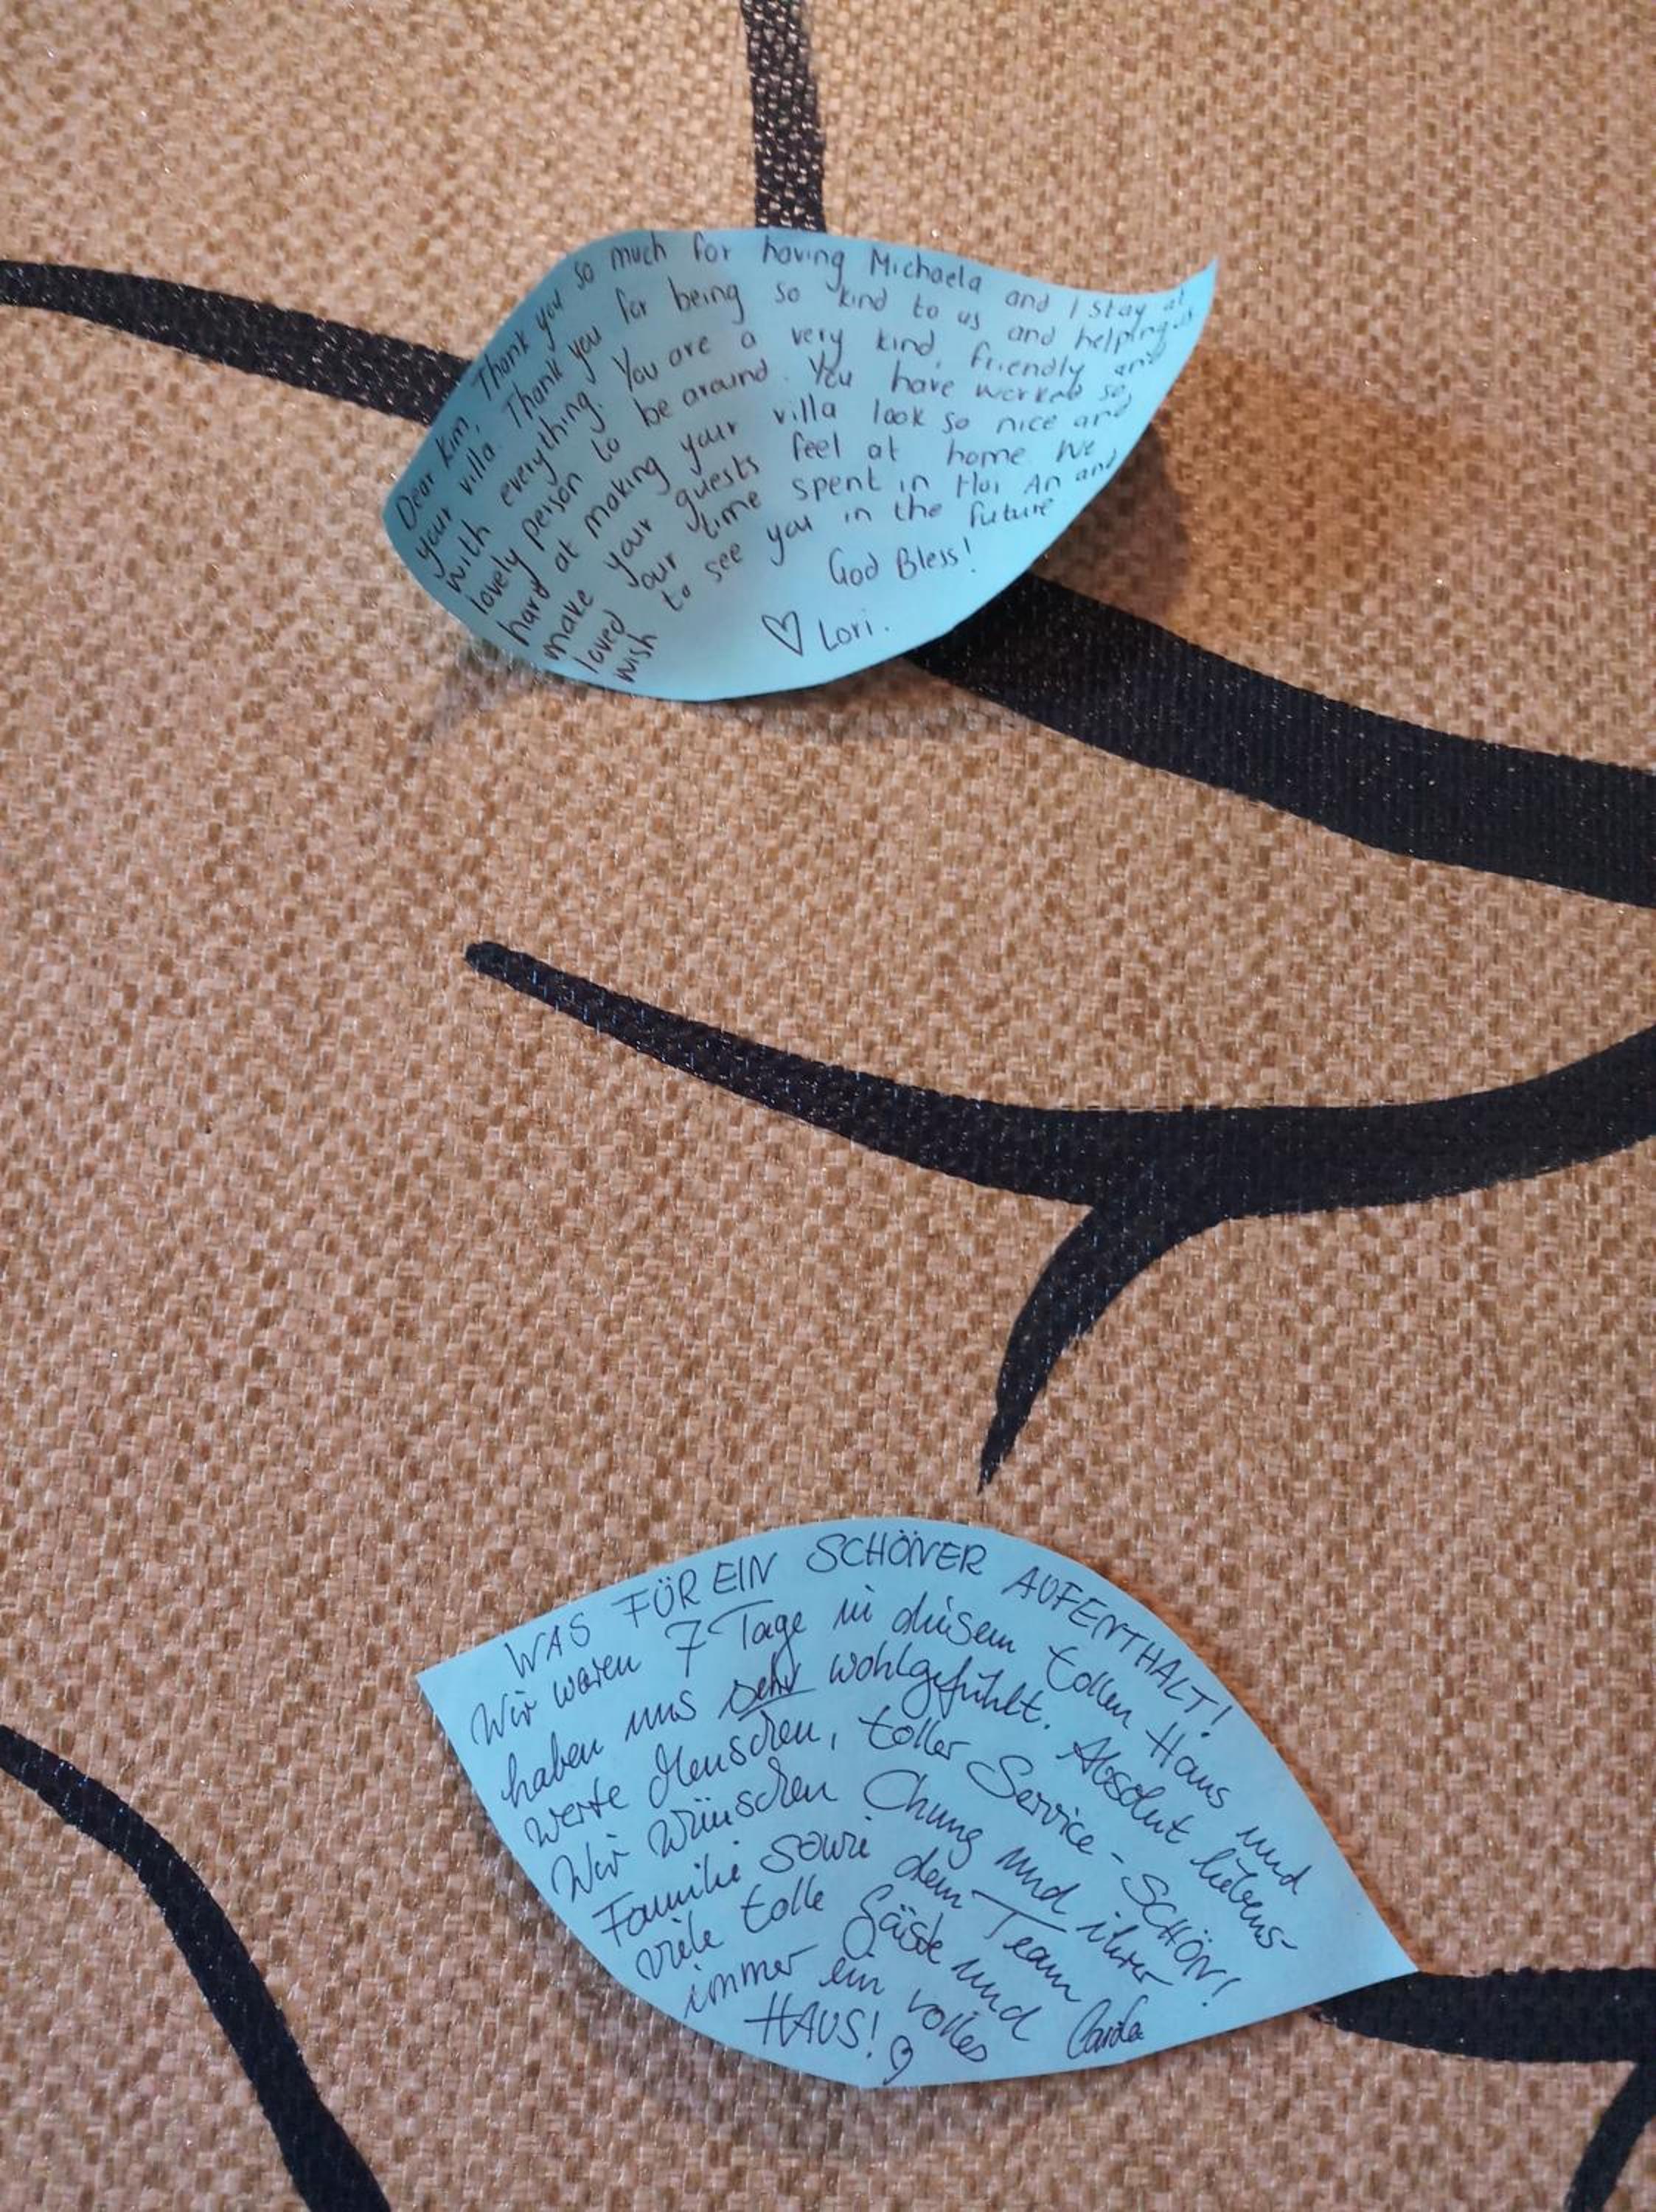 Dear Kim, Thank you so much for having Michaela and I stay at
your villa. Thank you for being so kind to us and helping us
with everything. You are a very kind, friendly and
lovely person to be around. You have worked so
hard at making your villa look so nice and
make your guests feel at home We
loved our time spent in Hoi An and
wish to see you in the future
God Bless!
♡ Lori.
WAS FÜR EIN SCHÖNER AUFENTHALT!
Wir waren 7 Tage in diesem tollen Haus und
haben uns sehr wohlgefühlt. Absolut liebens-
werte Menschen, toller Service - SCHÖN!
Wir wünschen Chung und ihrer
Familie sowie dem Team
viele tolle Gäste und
immer ein volles
HAUS! ♡